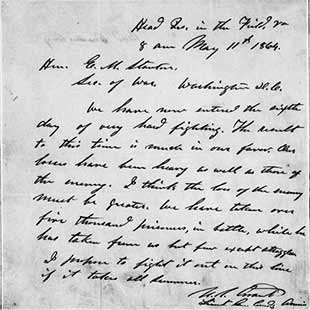 Head Qrs. in the Field, Va
8 am May 11th 1864.
Hon. E. M. Stanton,
Sec. of War. Washington D.C.
We have now entered the sixth
day of very hard fighting. The result
to this time is much in our favor. Our
losses have been heavy as well as those of
the enemy. I think the loss of the enemy
must be greater. We have taken over
five thousand prisoners, in battle, while he
has taken from us but few except stragglers
I propose to fight it out on this line
if it takes all summer.
U. S. Grant
Lieut. Gen. Comdg Armies